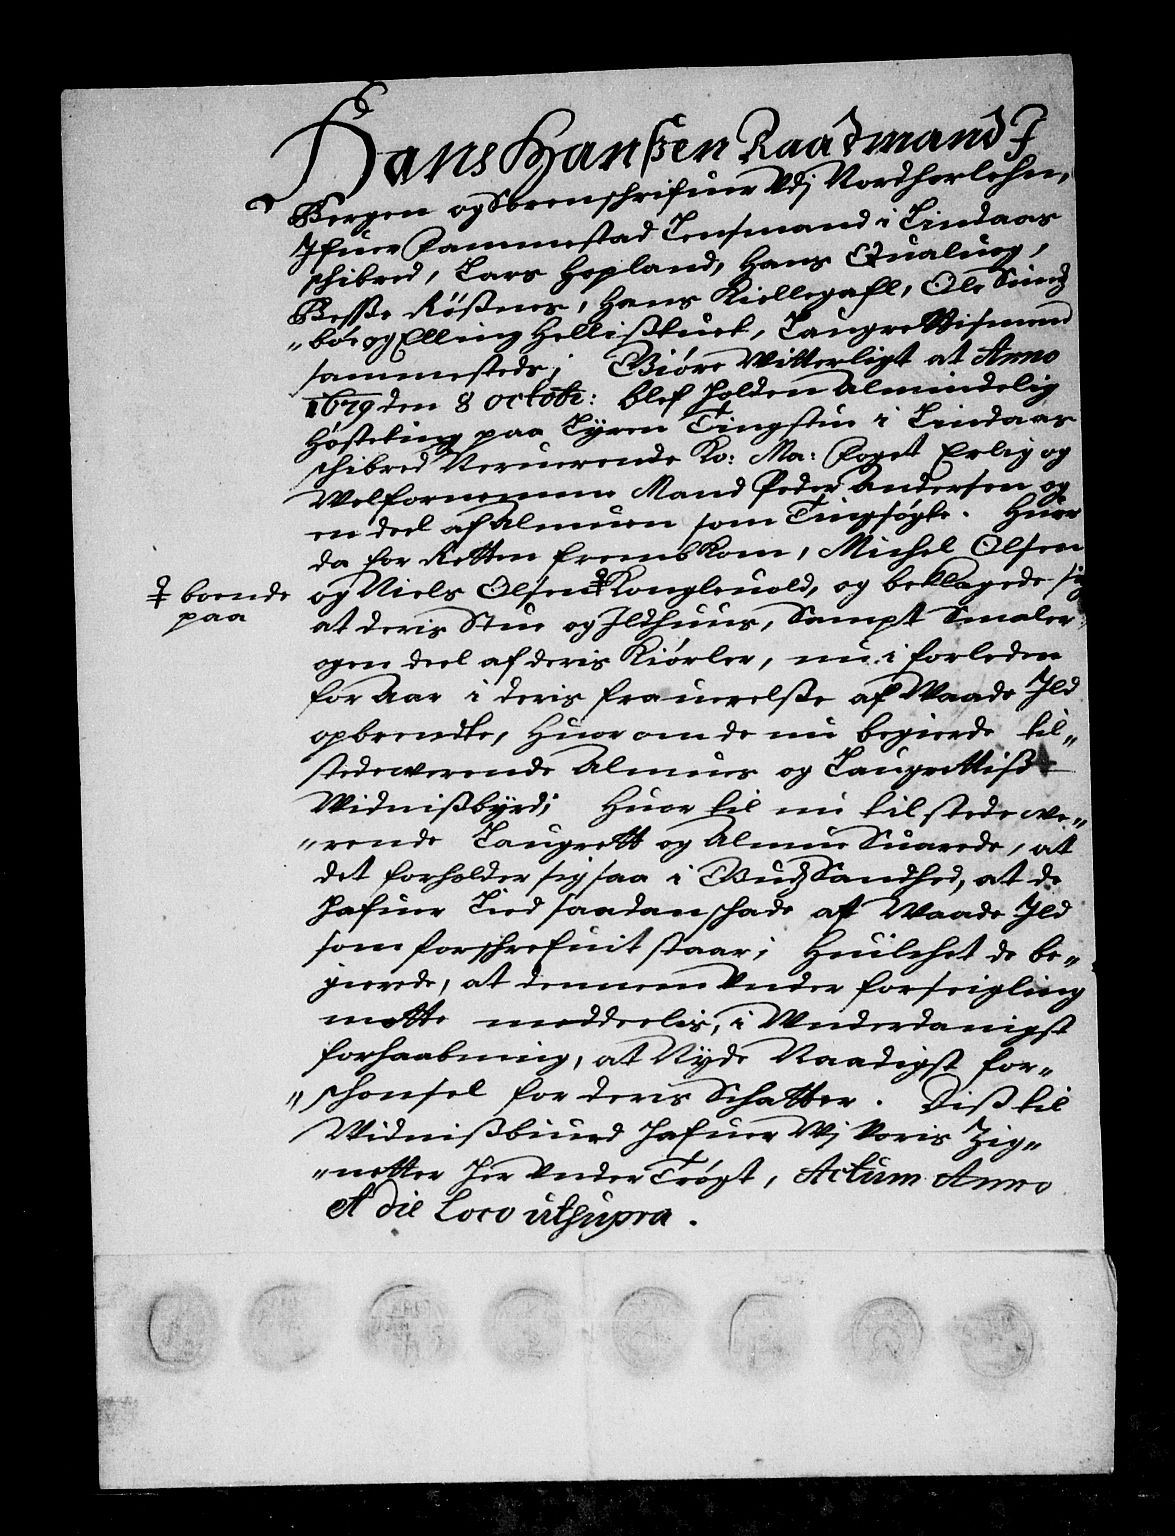 Hans Hanßen Raadmand J
Bergen og Sorenschrifuer Vdj Nordhorlehn,
Jfuer Rammestad Lensmand i Lindaas
schibred, Lars Hopland, Hans Qualuog,
Besse Rößnes, Hans Kiellegafl, Ole Sund
"bøe og Elling Hellißtuet, Laugrettismend
sammesteds; Giøre Witterligt at Anno
1679 den 8 octobr: blef holden Almindelig
Høsteting paa Lyren Tingstue i Lindaas
schibred Neruerende Ko: Ma: Foget Erlig og
Welfornemme Mand Peder Andersen og
en deel af Almuen som Tingsøgte. Huor
da for Retten frembkom, Michel Olsen
og Niels Olsen ‡ Kongleuold, og beklagede sig
‡ boende
paa
at deris Stue og Ildhuus, Sampt Smaler
ogen deel af deris Kiørler, nu i forleden
for Aar i deris frauerelße af Waade Ild
opbrendte, Huor om de nu begierde til"
stedewerende Almues og Laugrettiß
Widnißbyrd; Huor til nu tilstedewe"
"rende Laugrett og Almue Suarede, at
det forholder sig saa i Guds Sandhed, at de
hafuer Lied saadan schade af Waade Ild
som forschrefuit staar; Huilchet de be"
gierede, at dennem Vnder forseigling
motte meddeelis, i Vnderdanigst
forhaabning, at Nyde Naadigst for"
"schonsel for deris Schatter. Diß til
Widnißbiurd hafuer Wj Voris Zig"
"netter her Vnder Trøgt, Actum Anno
et die Loco utsupra.